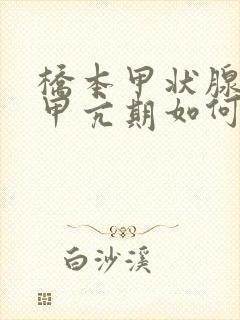 橋本甲状腺
甲亢期如何
白沙溪